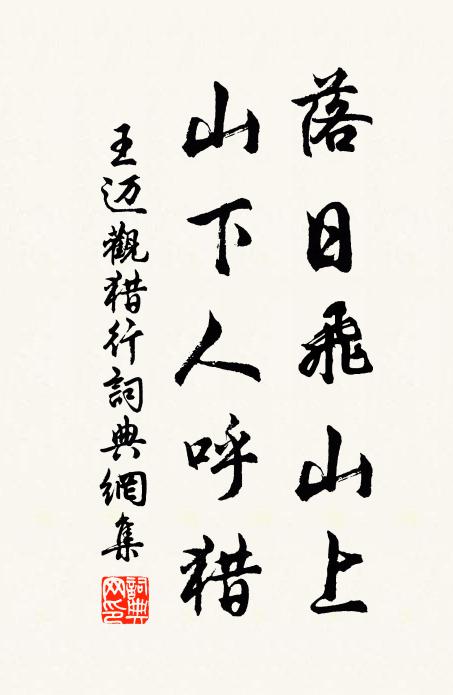 落日飛山上
山下人呼猎
王迈觀猎行詞典網集
詞典網印